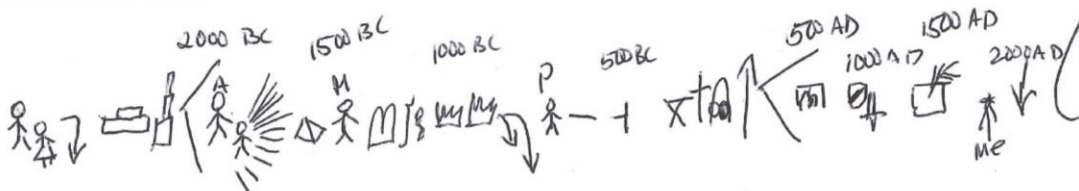 2000 BC 1500 BC 1000 BC 500 BC 500 AD 1000 AD 1500 AD 2000 AD
A M P
Me